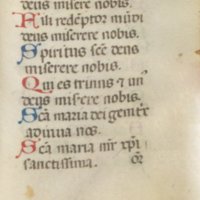 deus misere nobis.
Fili redẽptor mũdi
deus miserere nobis.
Spiritus sc̃e deus
miserere nobis.
Qui es trinus ⁊ un
deus miserere nobis.
Sc̃a maria dei genitx̃
adiuua nos.
Sc̃a maria mr̃ xp̃i
sanctissima. or̃